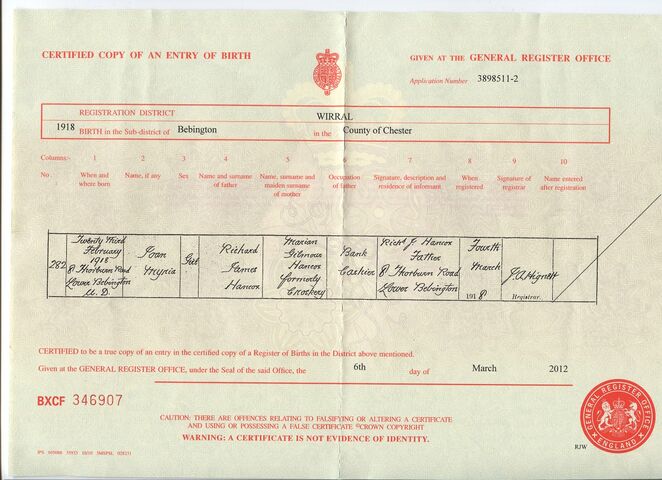 CERTIFIED COPY OF AN ENTRY OF BIRTH
GIVEN AT THE GENERAL REGISTER OFFICE
Application Number 3898511-2
REGISTRATION DISTRICT WIRRAL
1918 BIRTH in the Sub-district of Bebington in the County of Chester
Columns:- 1 2 3 4 5 6 7 8 9 10
No. When and where born Name, if any Sex Name and surname of father Name, surname and maiden surname of mother Occupation of father Signature, description and residence of informant When registered Signature of registrar Name entered after registration
282
Twenty Third
February
1918
8 Thorburn Road
Lower Bebington
U.D.
Joan
Myria
Girl
Richard
James
Hancox
Marian
Gilmour
Hancox
formerly
Crockery
Bank
Cashier
Richd J. Hancox
Father
8 Thorburn Road
Lower Bebington
Fourth
March
1918
Registrar.
CERTIFIED to be a true copy of an entry in the certified copy of a Register of Births in the District above mentioned.
Given at the GENERAL REGISTER OFFICE, under the Seal of the said Office, the 6th day of March 2012
BXCF 346907
CAUTION: THERE ARE OFFENCES RELATING TO FALSIFYING OR ALTERING A CERTIFICATE
AND USING OR POSSESSING A FALSE CERTIFICATE ©CROWN COPYRIGHT
WARNING: A CERTIFICATE IS NOT EVIDENCE OF IDENTITY.
GENERAL REGISTER OFFICE
ENGLAND
RJW